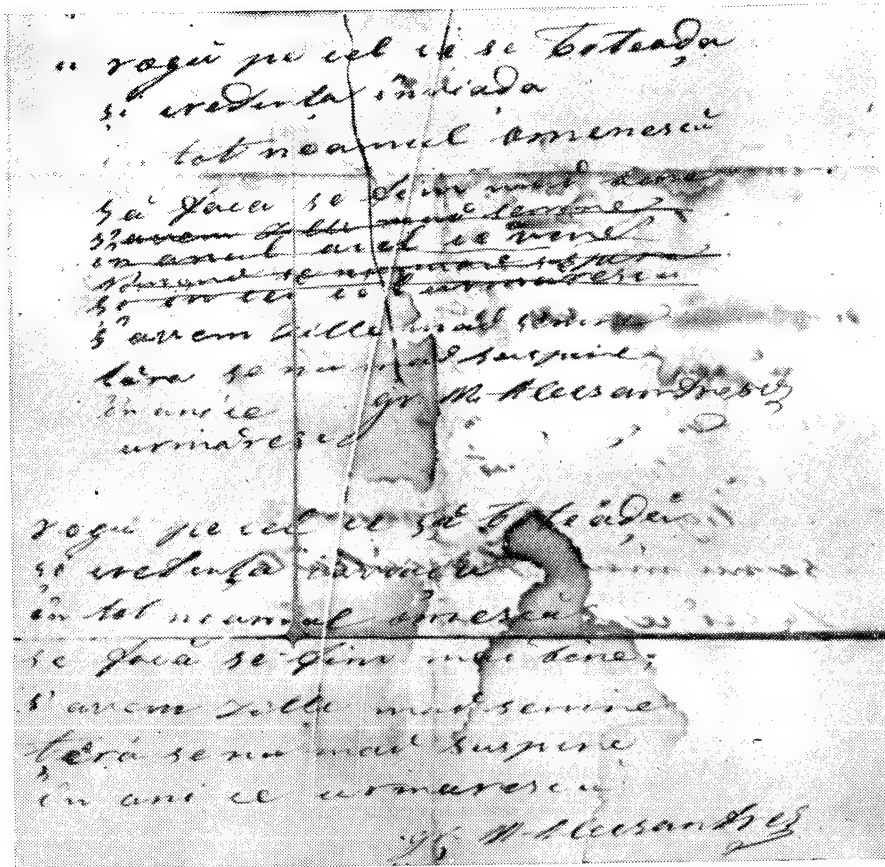 rogŭ pe cel ce se boteaḑa
si credința înviaḑa
tot neamul omenescŭ
să faca se fim mai bene
s'avem zille mai senine
in anul acel ce vine
se nu mai suspine
urmarescu
s'avem zille mai senine
těra se nu mai suspine
in ani ce
gr. M. Alecsandrescu
urmarescu
rogu pe cel ce să boteaḑă
si credința
în tot neamul omescŭ
se facă se fim mai bene;
s'avem zille mai senine
těră se nu mai suspine
în ani ce urmarescŭ
gr. M. Alecsandrescu